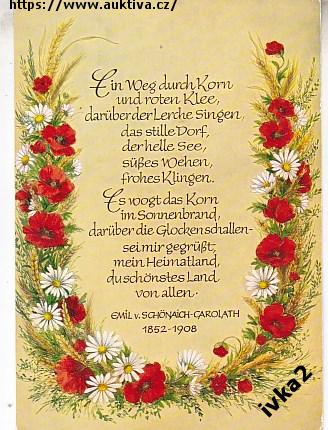 https://www.auktiva.cz/
Ein Weg durch Korn
und roten Klee,
darüber der Lerche Singen,
das stille Dorf,
der helle See,
süßes Wehen,
frohes Klingen.
Es wogt das Korn
im Sonnenbrand,
darüber die Glocken schallen-
sei mir gegrüßt,
mein Heimatland,
du schönstes Land
von allen.
EMIL v. SCHÖNAICH-CAROLATH
1852-1908
ivka2